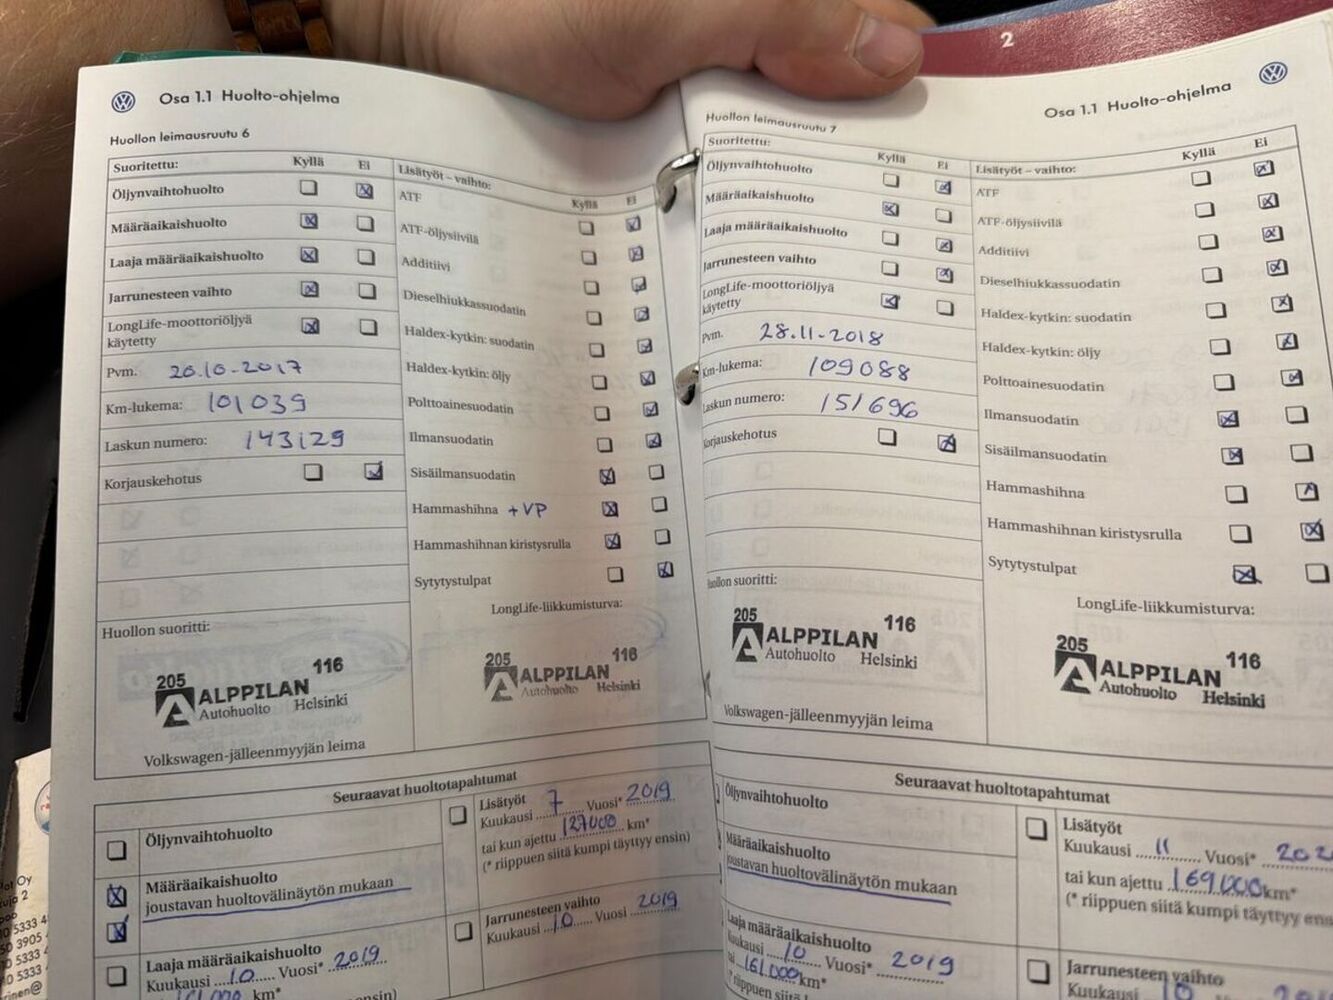 2
Osa 1.1 Huolto-ohjelma
Huollon leimausruutu 6
Suoritettu: Kyllä Ei
Öljynvaihtohuolto
Määräaikaishuolto
Laaja määräaikaishuolto
Jarrunesteen vaihto
LongLife-moottoriöljyä
käytetty
Pvm. 20.10.2017
Km-lukema: 101039
Laskun numero: 143129
Korjauskehotus
Huollon suoritti:
205 116
ALPPILAN
Autohuolto Helsinki
Volkswagen-jälleenmyyjän leima
Lisätyöt – vaihto: Kyllä Ei
ATF
ATF-öljysiivilä
Additiivi
Dieselhiukkassuodatin
Haldex-kytkin: suodatin
Haldex-kytkin: öljy
Polttoainesuodatin
Ilmansuodatin
Sisäilmansuodatin
Hammashihna + VP
Hammashihnan kiristysrulla
Sytytystulpat
LongLife-liikkumisturva:
205 116
ALPPILAN
Autohuolto Helsinki
Seuraavat huoltotapahtumat
Öljynvaihtohuolto
Määräaikaishuolto
joustavan huoltovälinäytön mukaan
Laaja määräaikaishuolto
Kuukausi 10 Vuosi* 2019
km*
Lisätyöt
Kuukausi 7 Vuosi* 2019
tai kun ajettu 127000 km*
(* riippuen siitä kumpi täyttyy ensin)
Jarrunesteen vaihto
Kuukausi 10 Vuosi 2019
Osa 1.1 Huolto-ohjelma
Huollon leimausruutu 7
Suoritettu: Kyllä Ei
Öljynvaihtohuolto
Määräaikaishuolto
Laaja määräaikaishuolto
Jarrunesteen vaihto
LongLife-moottoriöljyä
käytetty
Pvm. 28.11.2018
Km-lukema: 109088
Laskun numero: 151696
Korjauskehotus
Huollon suoritti:
205 116
ALPPILAN
Autohuolto Helsinki
Volkswagen-jälleenmyyjän leima
Lisätyöt – vaihto: Kyllä Ei
ATF
ATF-öljysiivilä
Additiivi
Dieselhiukkassuodatin
Haldex-kytkin: suodatin
Haldex-kytkin: öljy
Polttoainesuodatin
Ilmansuodatin
Sisäilmansuodatin
Hammashihna
Hammashihnan kiristysrulla
Sytytystulpat
LongLife-liikkumisturva:
205 116
ALPPILAN
Autohuolto Helsinki
Seuraavat huoltotapahtumat
Öljynvaihtohuolto
Määräaikaishuolto
joustavan huoltovälinäytön mukaan
Laaja määräaikaishuolto
Kuukausi 10 Vuosi* 2019
tai 161000 km*
(* riippuen siitä
Lisätyöt
Kuukausi 11 Vuosi*
tai kun ajettu 169000 km*
(* riippuen siitä kumpi täyttyy
Jarrunesteen vaihto
Kuukausi 10 Vuosi